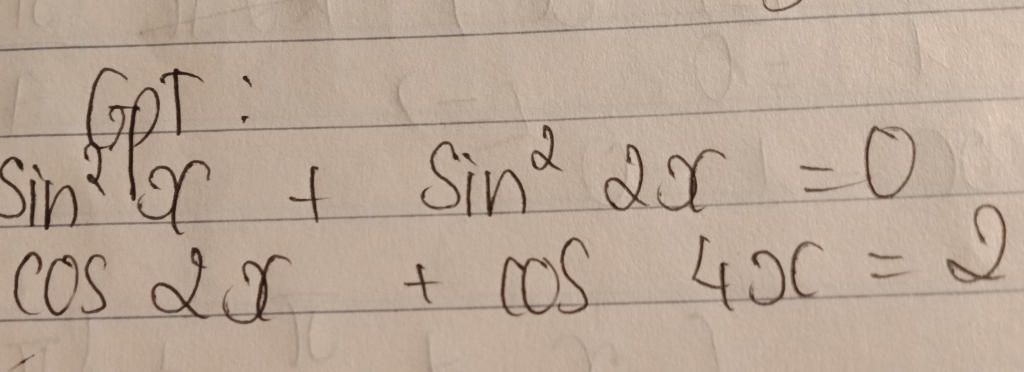 GPT :
Sin² x + Sin² 2x = 0
cos 2x + cos 4x = 2